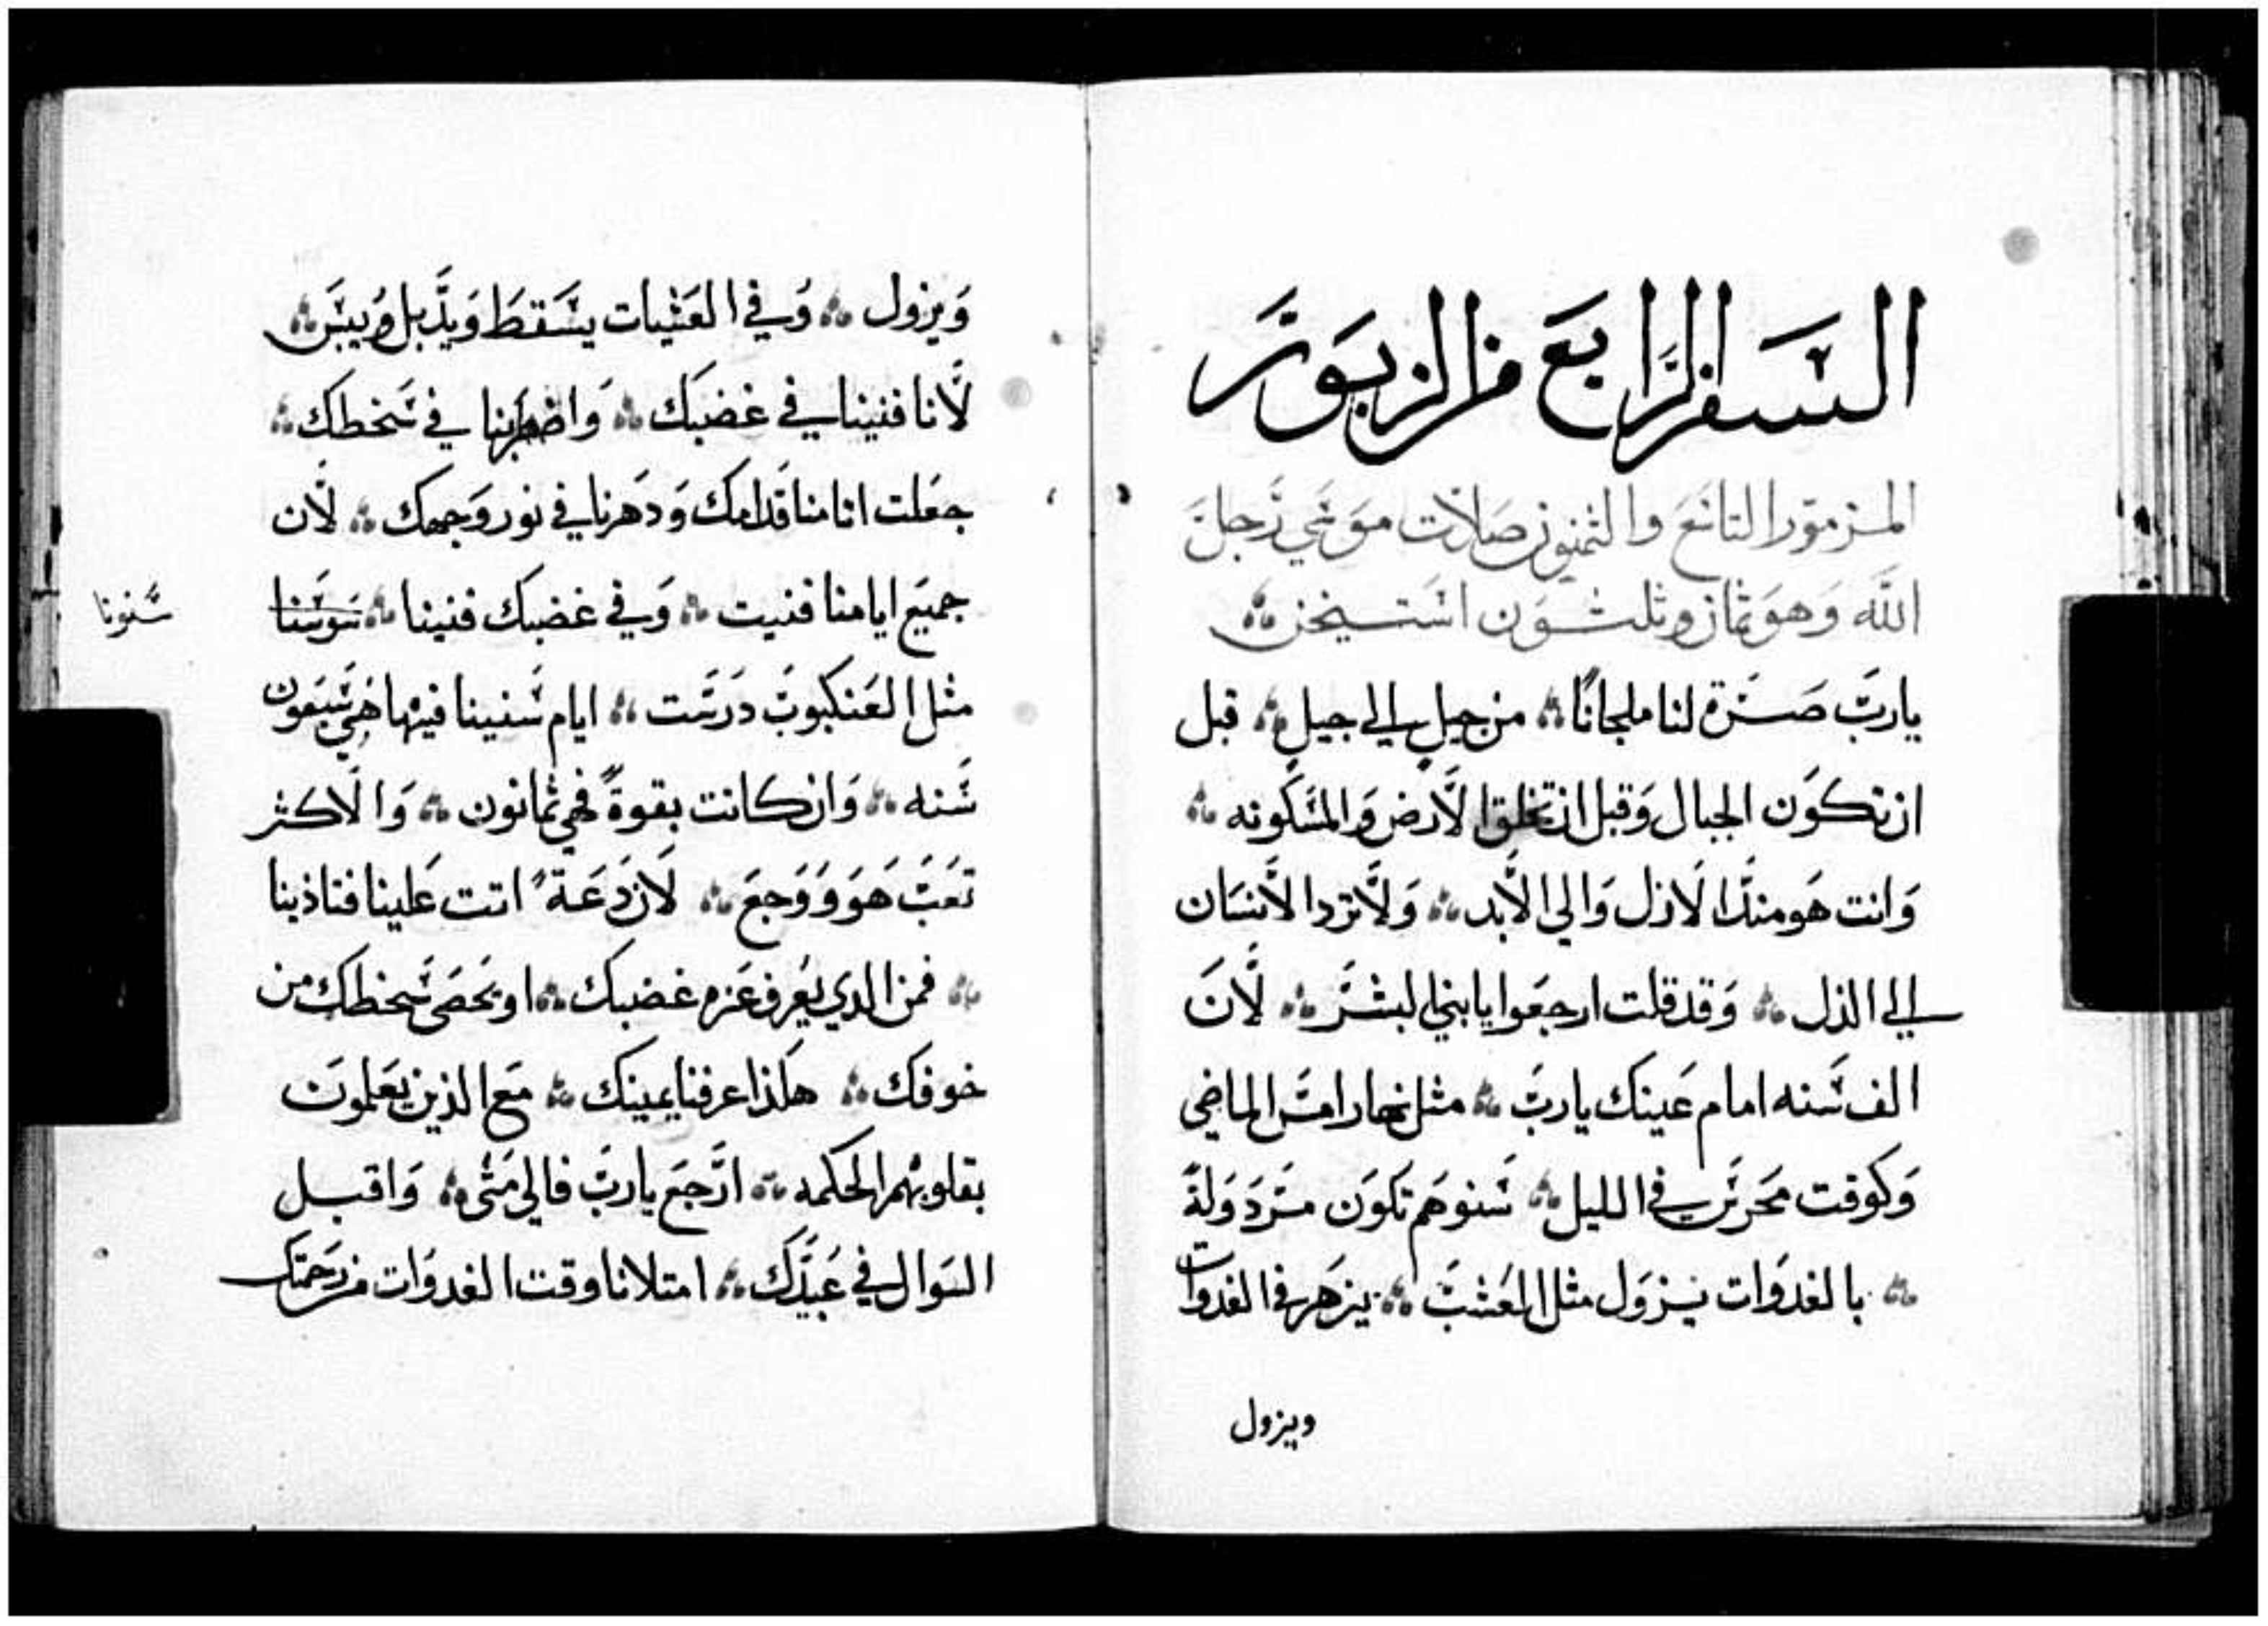 السفر الرابع من الزبور
المزمور التاسع والثمنون صلاة موسي رجل
الله وهو ثمان وثلثون استيخن
يارب صرة لنا ملجانا من جيل الي جيل قبل
ان تكون الجبال وقبل ان تخلق الارض والمسكونه
وانت هو منذ الازل والي الابد ولا ترد الانسان
الي الذل وقد قلت ارجعوا يا بني البشر لان
الف سنه امام عينك يارب مثل نهار امس الماضي
وكوقت محرس في الليل سنوهم تكون مردولة
بالغدوات يزول مثل العشب يزهر في الغدوات
ويزول
ويزول وفي العشيات يسقط ويذبل وييبس
لانا فنينا في غضبك واضطربنا في سخطك
جعلت اثامنا قدامك ودهرنا في نور وجهك لان
جميع ايامنا فنيت وفي غضبك فنينا
سنونا
مثل العنكبوت درست ايام سنينا فيها هي سبعون
سنه وان كانت بقوة فهي ثمانون والاكثر
تعب هو ووجع لان دعة اتت علينا فتاذبنا
فمن الدي يعرف عزه غضبك او يحصي سخطك من
خوفك هكذا عرفنا يمينك مع الذين يعلمون
بقلوبهم الحكمه ارجع يارب فالي متى واقبل
السوال في عبيدك امتلانا وقت الغدوات من رحمتك